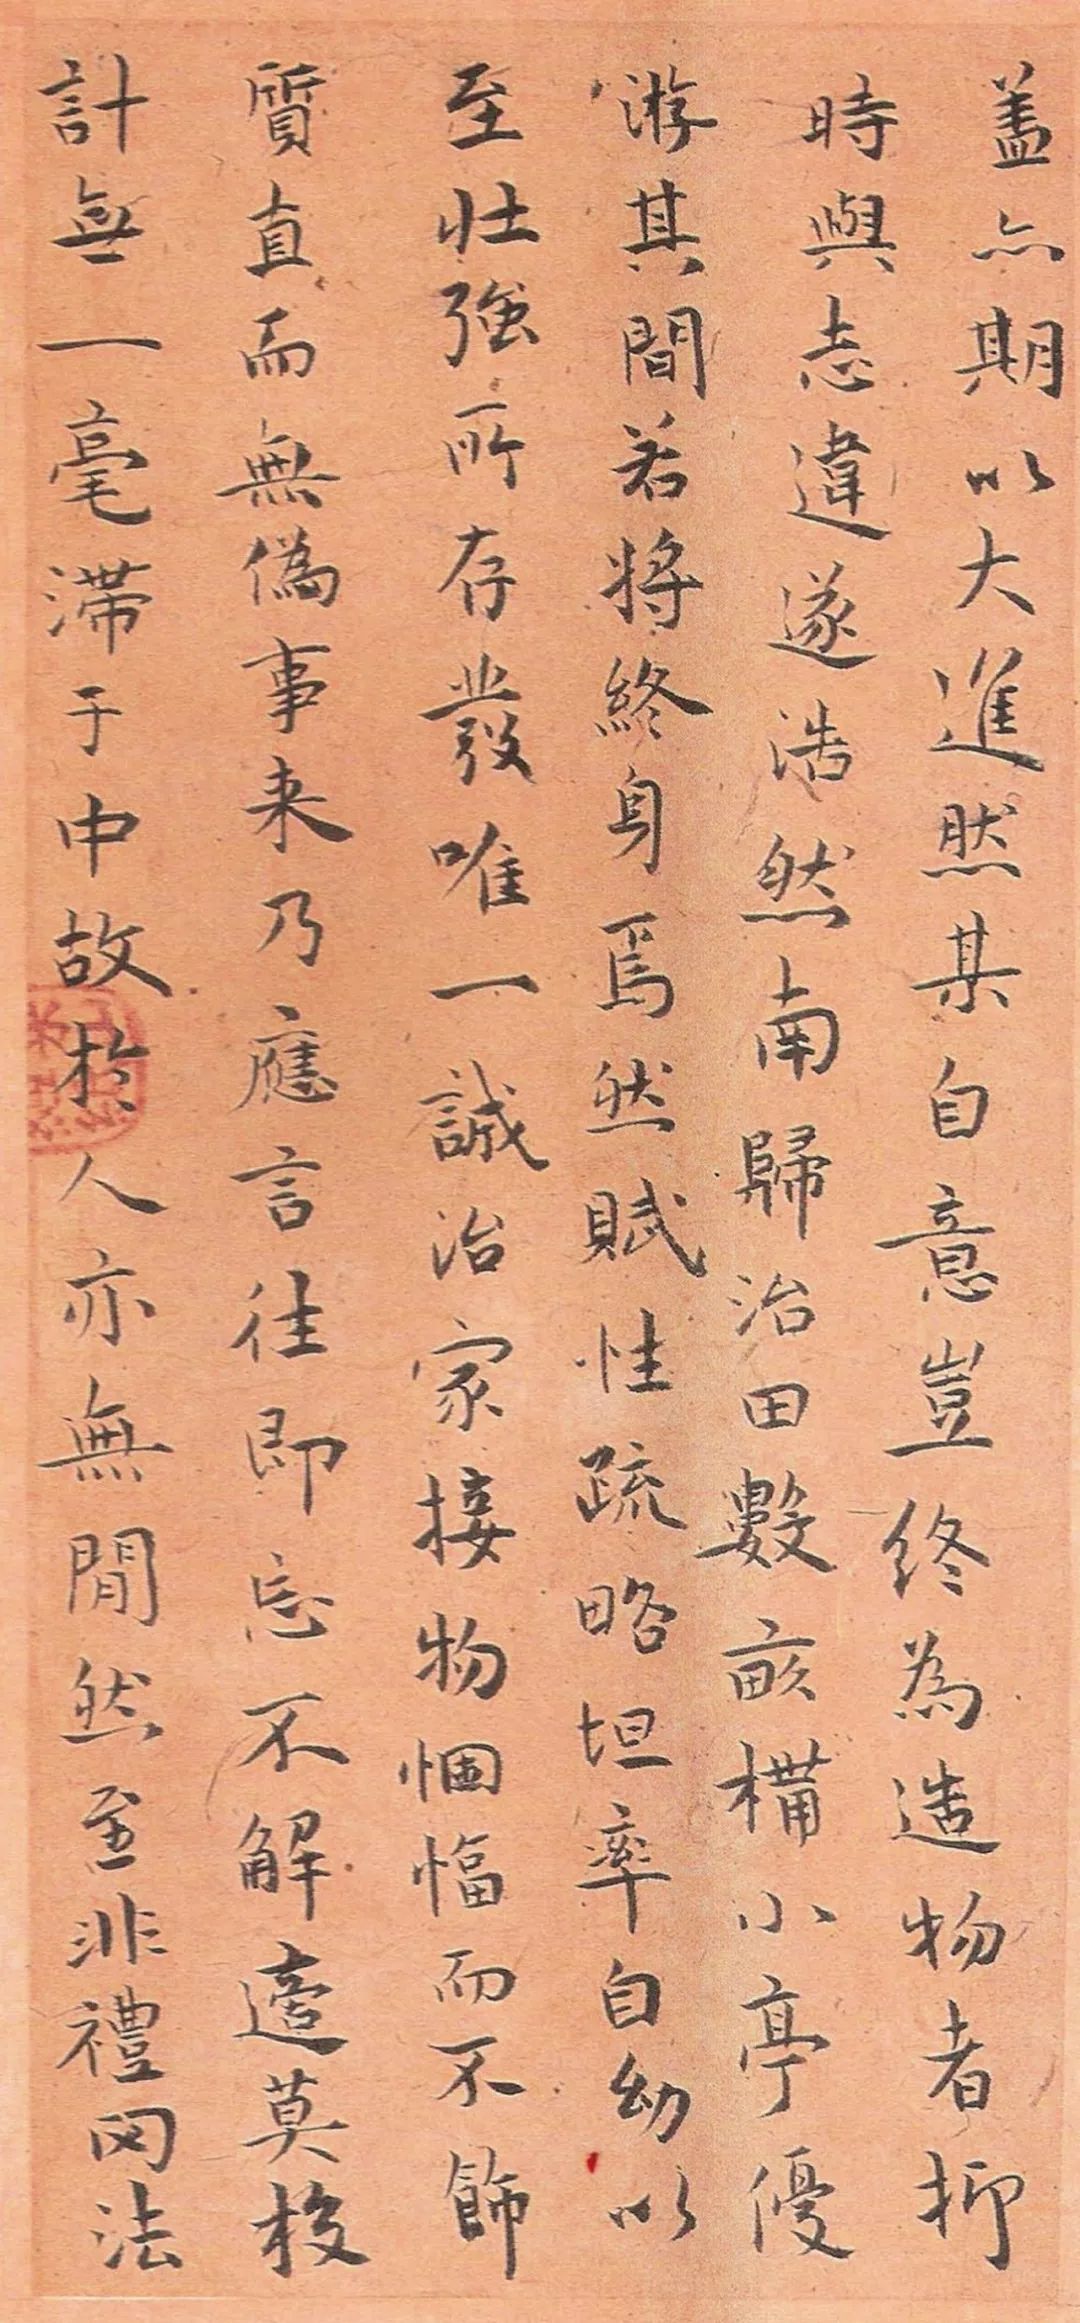 蓋亦期以大進然某自意豈終為造物者抑
時與志違遂浩然南歸治田數畝構小亭優
游其間若將終身焉然賦性疏略坦率自幼以
至壯強所存發唯一誠治家接物悃愊而不飾
質直而無偽事来乃應言往即忘不解適莫校
計無一毫滞于中故於人亦無閒然至非禮罔法